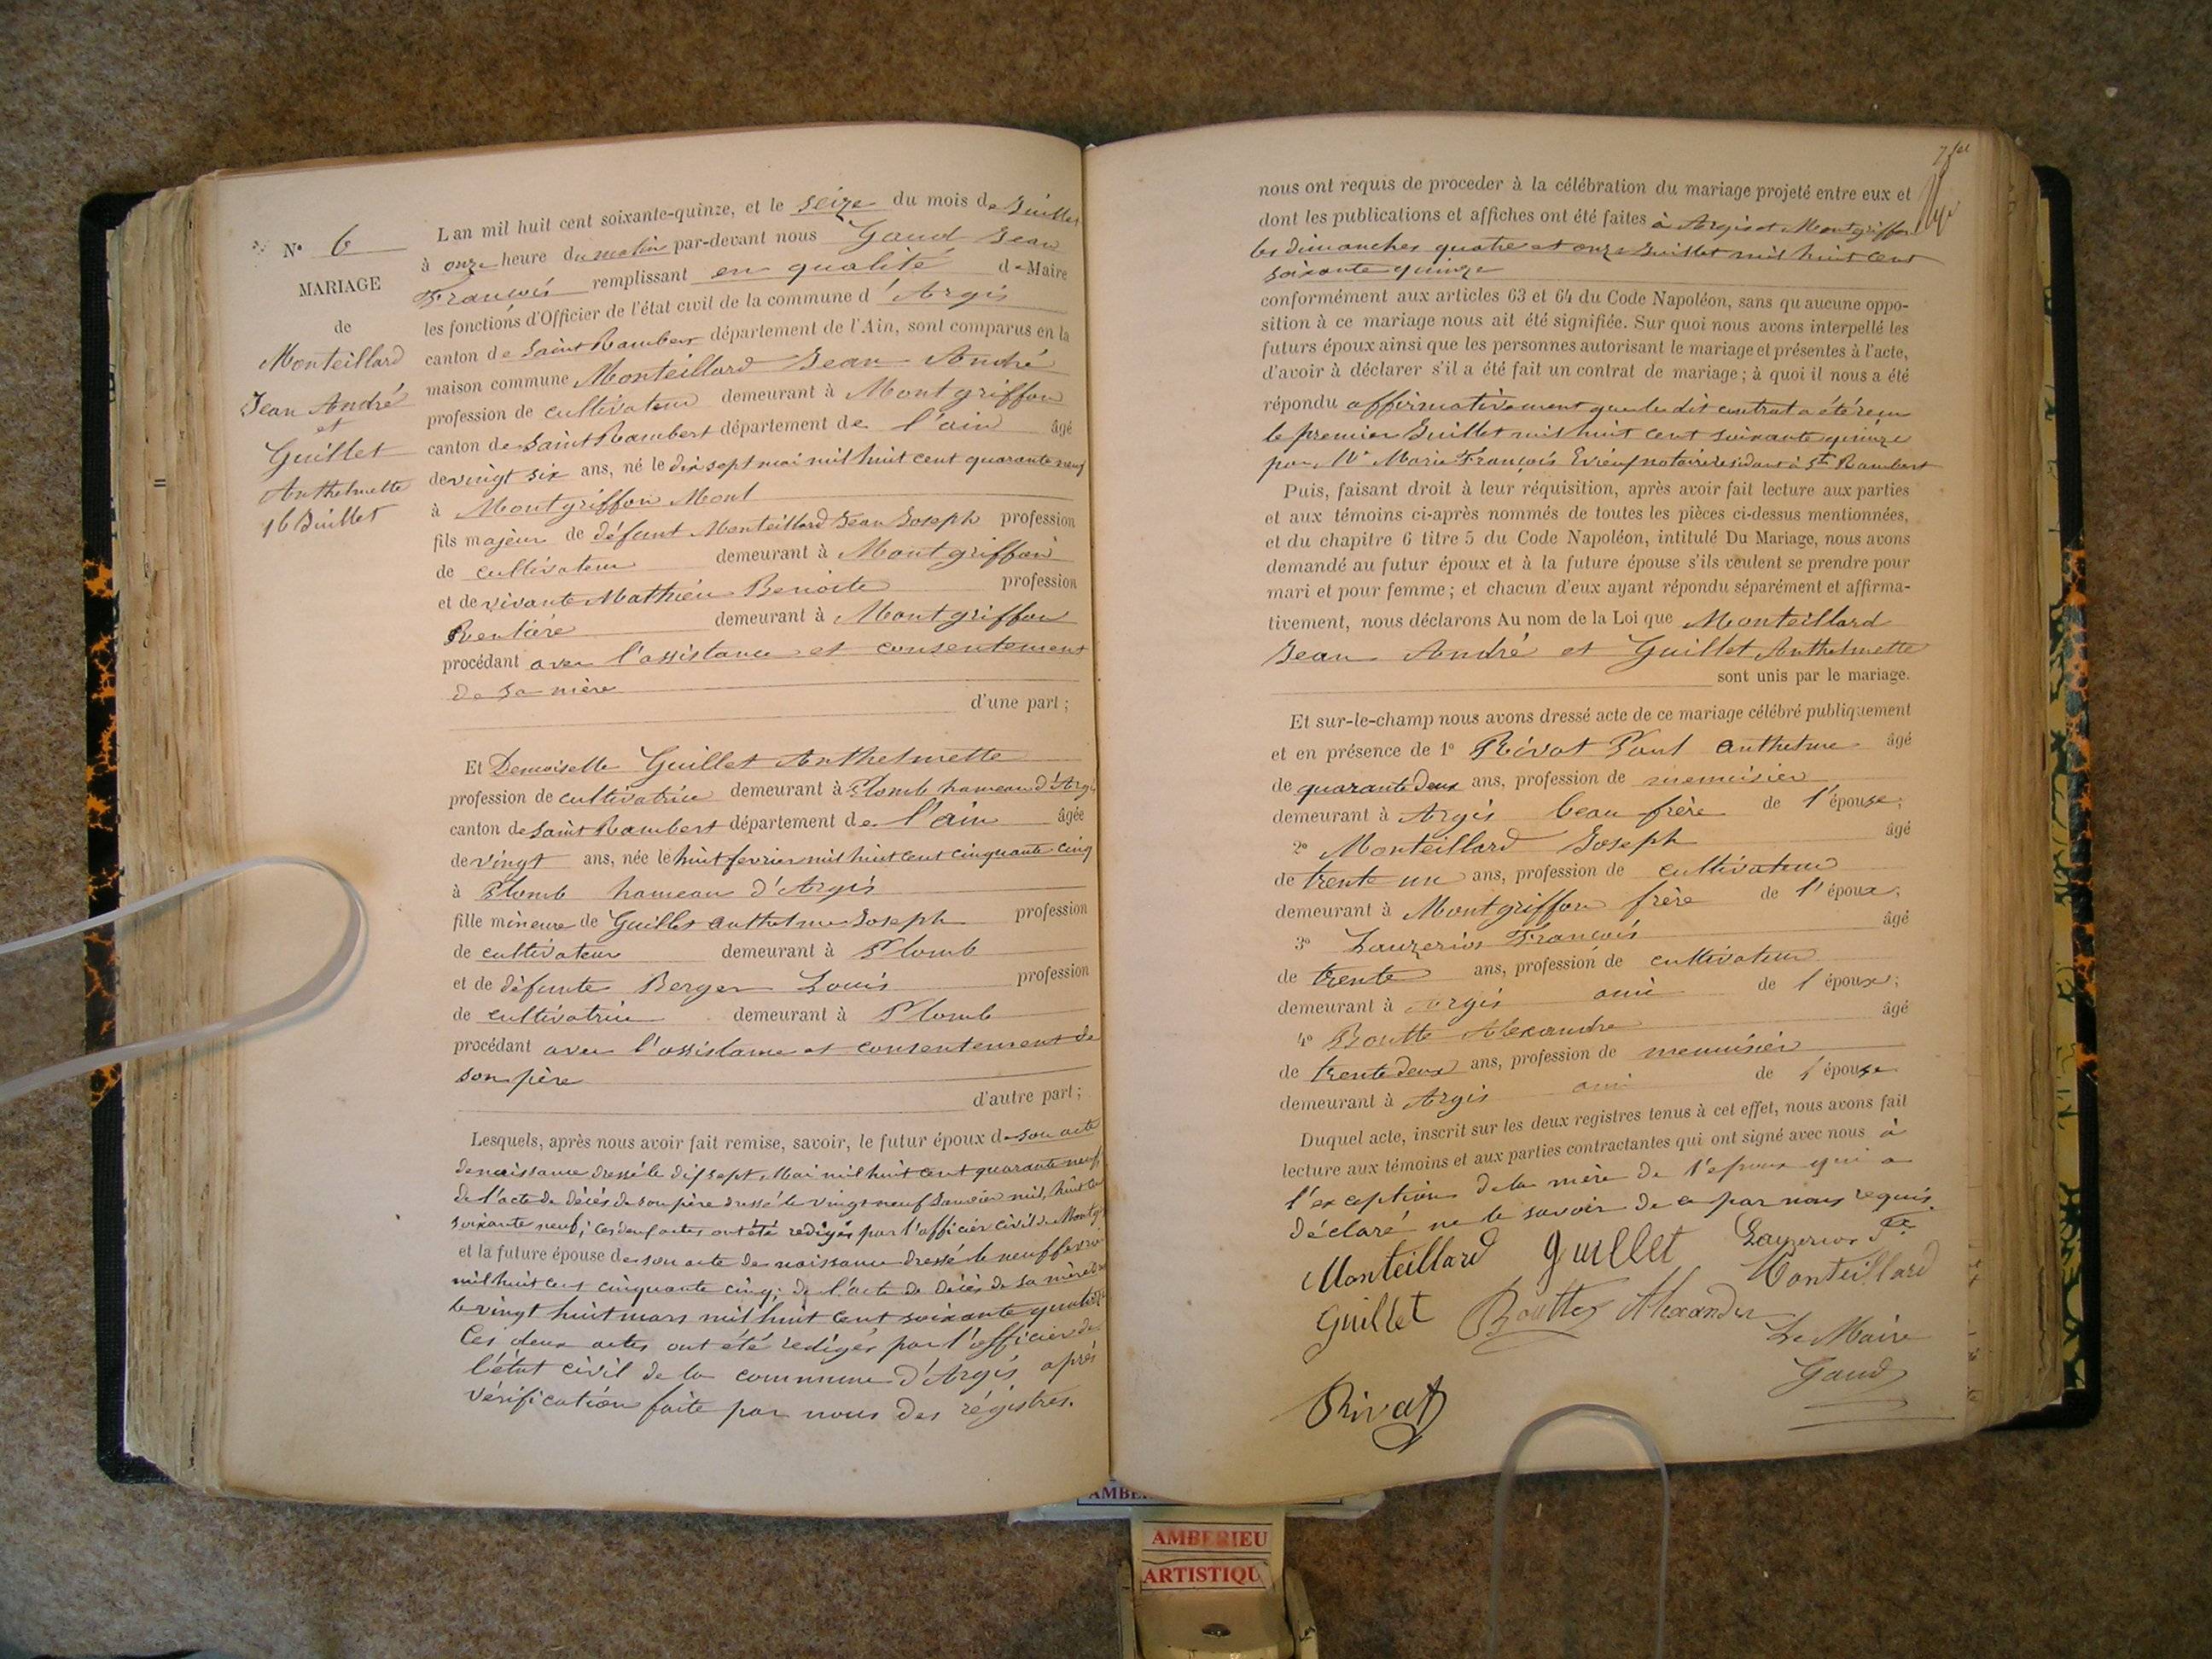 N° 6
MARIAGE
de
Monteillard
Jean André
et
Guillet
Anthelmette
16 Juillet
L an mil huit cent soixante-quinze, et le seize du mois de Juillet
à onze heure du matin par-devant nous Gaud Jean
François remplissant en qualité de Maire
les fonctions d'Officier de l'état civil de la commune d'Argis
canton de Saint Rambert département de l'Ain, sont comparus en la
maison commune Monteillard Jean André
profession de cultivateur demeurant à Montgriffon
canton de Saint Rambert département de l'ain âgé
de vingt six ans, né le dix sept mai mil huit cent quarante neuf
à Montgriffon Mont
fils majeur de défunt Monteillard Jean Joseph profession
de cultivateur demeurant à Montgriffon
et de vivante Mathieu Benoite profession
Rentière demeurant à Montgriffon
procédant avec l'assistance et consentement
de sa mère
d'une part ;
Et Demoiselle Guillet Anthelmette
profession de cultivatrice demeurant à Plomb hameau d'Argis
canton de Saint Rambert département de l'ain âgée
de vingt ans, née le huit fevrier mil huit cent cinquante cinq
à Plomb hameau d'Argis
fille mineure de Guillet anthelme Joseph profession
de cultivateur demeurant à Plomb
et de défunte Berger Louis profession
de cultivatrice demeurant à Plomb
procédant avec l'assistance et consentement de
son père
d'autre part ;
Lesquels, après nous avoir fait remise, savoir, le futur époux de son acte
de naissance dressé le dix sept Mai mil huit cent quarante neuf
de l'acte de décès de son père dressé le vingt neuf Janvier mil huit cent
soixante neuf ; ces deux actes ont été rédigés par l'officier civil de
et la future épouse de son acte de naissance dressé le neuf fevrier
mil huit cent cinquante cinq ; de l'acte de décès de sa mère
le vingt huit mars mil huit cent soixante quatorze
Ces deux actes ont été rédigés par l'officier de
l'état civil de la commune d'Argis après
vérification faite par nous des régistres.
nous ont requis de proceder à la célébration du mariage projeté entre eux et
dont les publications et affiches ont été faites à Argis et Montgriffon
les dimanches quatre et onze Juillet mil huit cent
soixante quinze
conformément aux articles 63 et 64 du Code Napoléon, sans qu aucune oppo-
sition à ce mariage nous ait été signifiée. Sur quoi nous avons interpellé les
futurs époux ainsi que les personnes autorisant le mariage et présentes à l'acte,
d'avoir à déclarer s'il a été fait un contrat de mariage ; à quoi il nous a été
répondu affirmativement que le dit contrat a été reçu
le premier Juillet mil huit cent soixante quinze
par Me Marie François notaire résidant à St Rambert
Puis, faisant droit à leur réquisition, après avoir fait lecture aux parties
et aux témoins ci-après nommés de toutes les pièces ci-dessus mentionnées,
et du chapitre 6 titre 5 du Code Napoléon, intitulé Du Mariage, nous avons
demandé au futur époux et à la future épouse s'ils veulent se prendre pour
mari et pour femme ; et chacun d'eux ayant répondu séparément et affirma-
tivement, nous déclarons Au nom de la Loi que Monteillard
Jean André et Guillet Anthelmette
sont unis par le mariage.
Et sur-le-champ nous avons dressé acte de ce mariage célébré publiquement
et en présence de 1° Rivat Paul anthelme âgé
de quarante deux ans, profession de menuisier
demeurant à Argis beau frère de l'épouse ;
2° Monteillard Joseph âgé
de trente un ans, profession de cultivateur
demeurant à Montgriffon frère de l'époux ;
3° Lauzerios François âgé
de trente ans, profession de cultivateur
demeurant à argis ami de l époux ;
4° Boutte Alexandre âgé
de trente deux ans, profession de menuisier
demeurant à Argis ami de l'épouse
Duquel acte, inscrit sur les deux registres tenus à cet effet, nous avons fait
lecture aux témoins et aux parties contractantes qui ont signé avec nous à
l'exception de la mère de l'époux qui a
déclaré ne le savoir de ce par nous requis.
Monteillard Guillet
Monteillard
Guillet Boutte Alexandre
Le Maire
Gaud
Rivat
AMBERIEU
ARTISTIQU